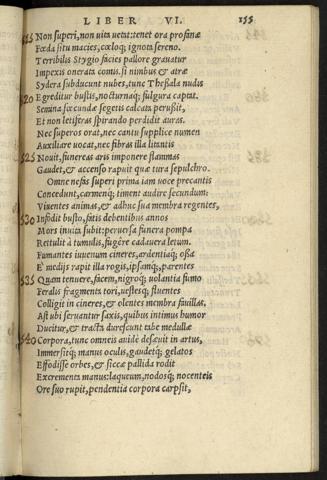 LIBER VI. 155
515 Non superi, non uita uetat: tenet ora profanæ
Fœda situ macies, cœloq; ignota sereno.
Terribilis Stygio facies pallore grauatur
Impexis onerata comis. si nimbus & atræ
Sydera subducunt nubes, tunc Thessala nudis
520 Egreditur bustis, nocturnaq; fulgura captat.
Semina fœcundæ segetis calcata perussit,
Et non letiferas spirando perdidit auras.
Nec superos orat, nec cantu supplice numen
Auxiliare uocat, nec fibras illa litantis
525 Nouit, funereas aris imponere flammas
Gaudet, & accenso rapuit quæ tura sepulchro.
Omne nefas superi prima iam uoce precantis
Concedunt, carmenq; timent audire secundum.
Viuentes animas, & adhuc sua membra regentes,
530 Infodit busto, fatis debentibus annos
Mors inuita subit: peruersa funera pompa
Rettulit à tumulis, fugére cadauera letum.
Fumantes iuuenum cineres, ardentiaq; ossa
E' medijs rapit illa rogis, ipsamq;, parentes
535 Quam tenuere, facem, nigroq; uolantia fumo
Feralis fragmenta tori, uestesq; fluentes
Colligit in cineres, & olentes membra fauillas,
Ast ubi seruantur saxis, quibus intimus humor
Ducitur, & tracta durescunt tabe medullæ
540 Corpora, tunc omneis auidè desæuit in artus,
Immersitq; manus oculis, gaudetq; gelatos
Effodisse orbes, & siccæ pallida rodit
Excrementa manus: laqueum, nodosq; nocenteis
Ore suo rupit, pendentia corpora carpsit,